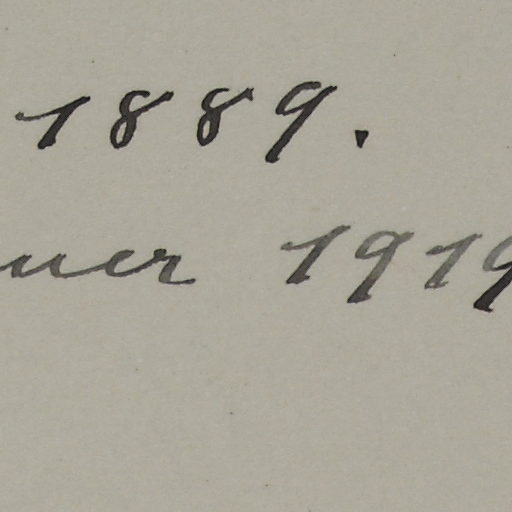 1889.
uer 1919